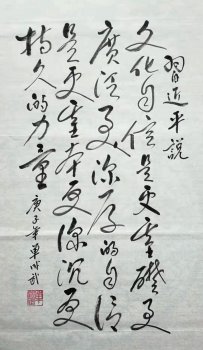 習近平說
文化自信是更基礎更
廣泛更深厚的自信
是更基本更深沉更
持久的力量
庚子年